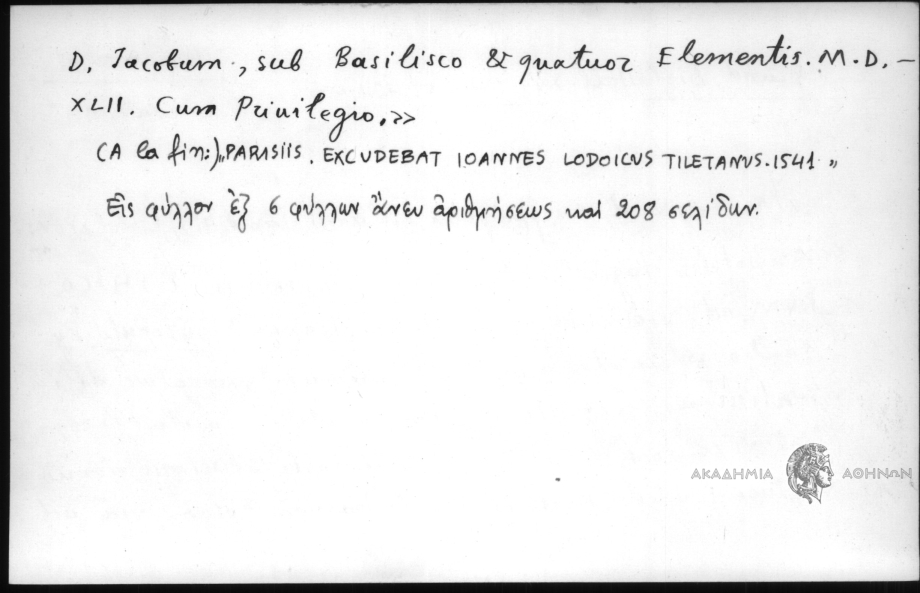 D. Iacobum, sub Basilisco & quatuor Elementis. M.D.–
XLII. Cum Priuilegio.»
(A la fin:) „PARISIIS. EXCUDEBAT IOANNES LODOICUS TILETANUS. 1541 „
Εἰς φύλλον ἐξ 6 φύλλων ἄνευ ἀριθμήσεως καὶ 208 σελίδων.
ΑΚΑΔΗΜΙΑ ΑΘΗΝΩΝ